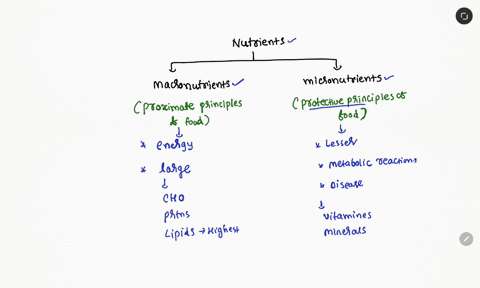 Nutrients
macronutrients
micronutrients
(proximate principles
of food)
(protective principles of
food)
* energy
* large
CHO
prtns
Lipids → Highest
* Lesser
* metabolic reactions
* Disease
vitamines
minerals